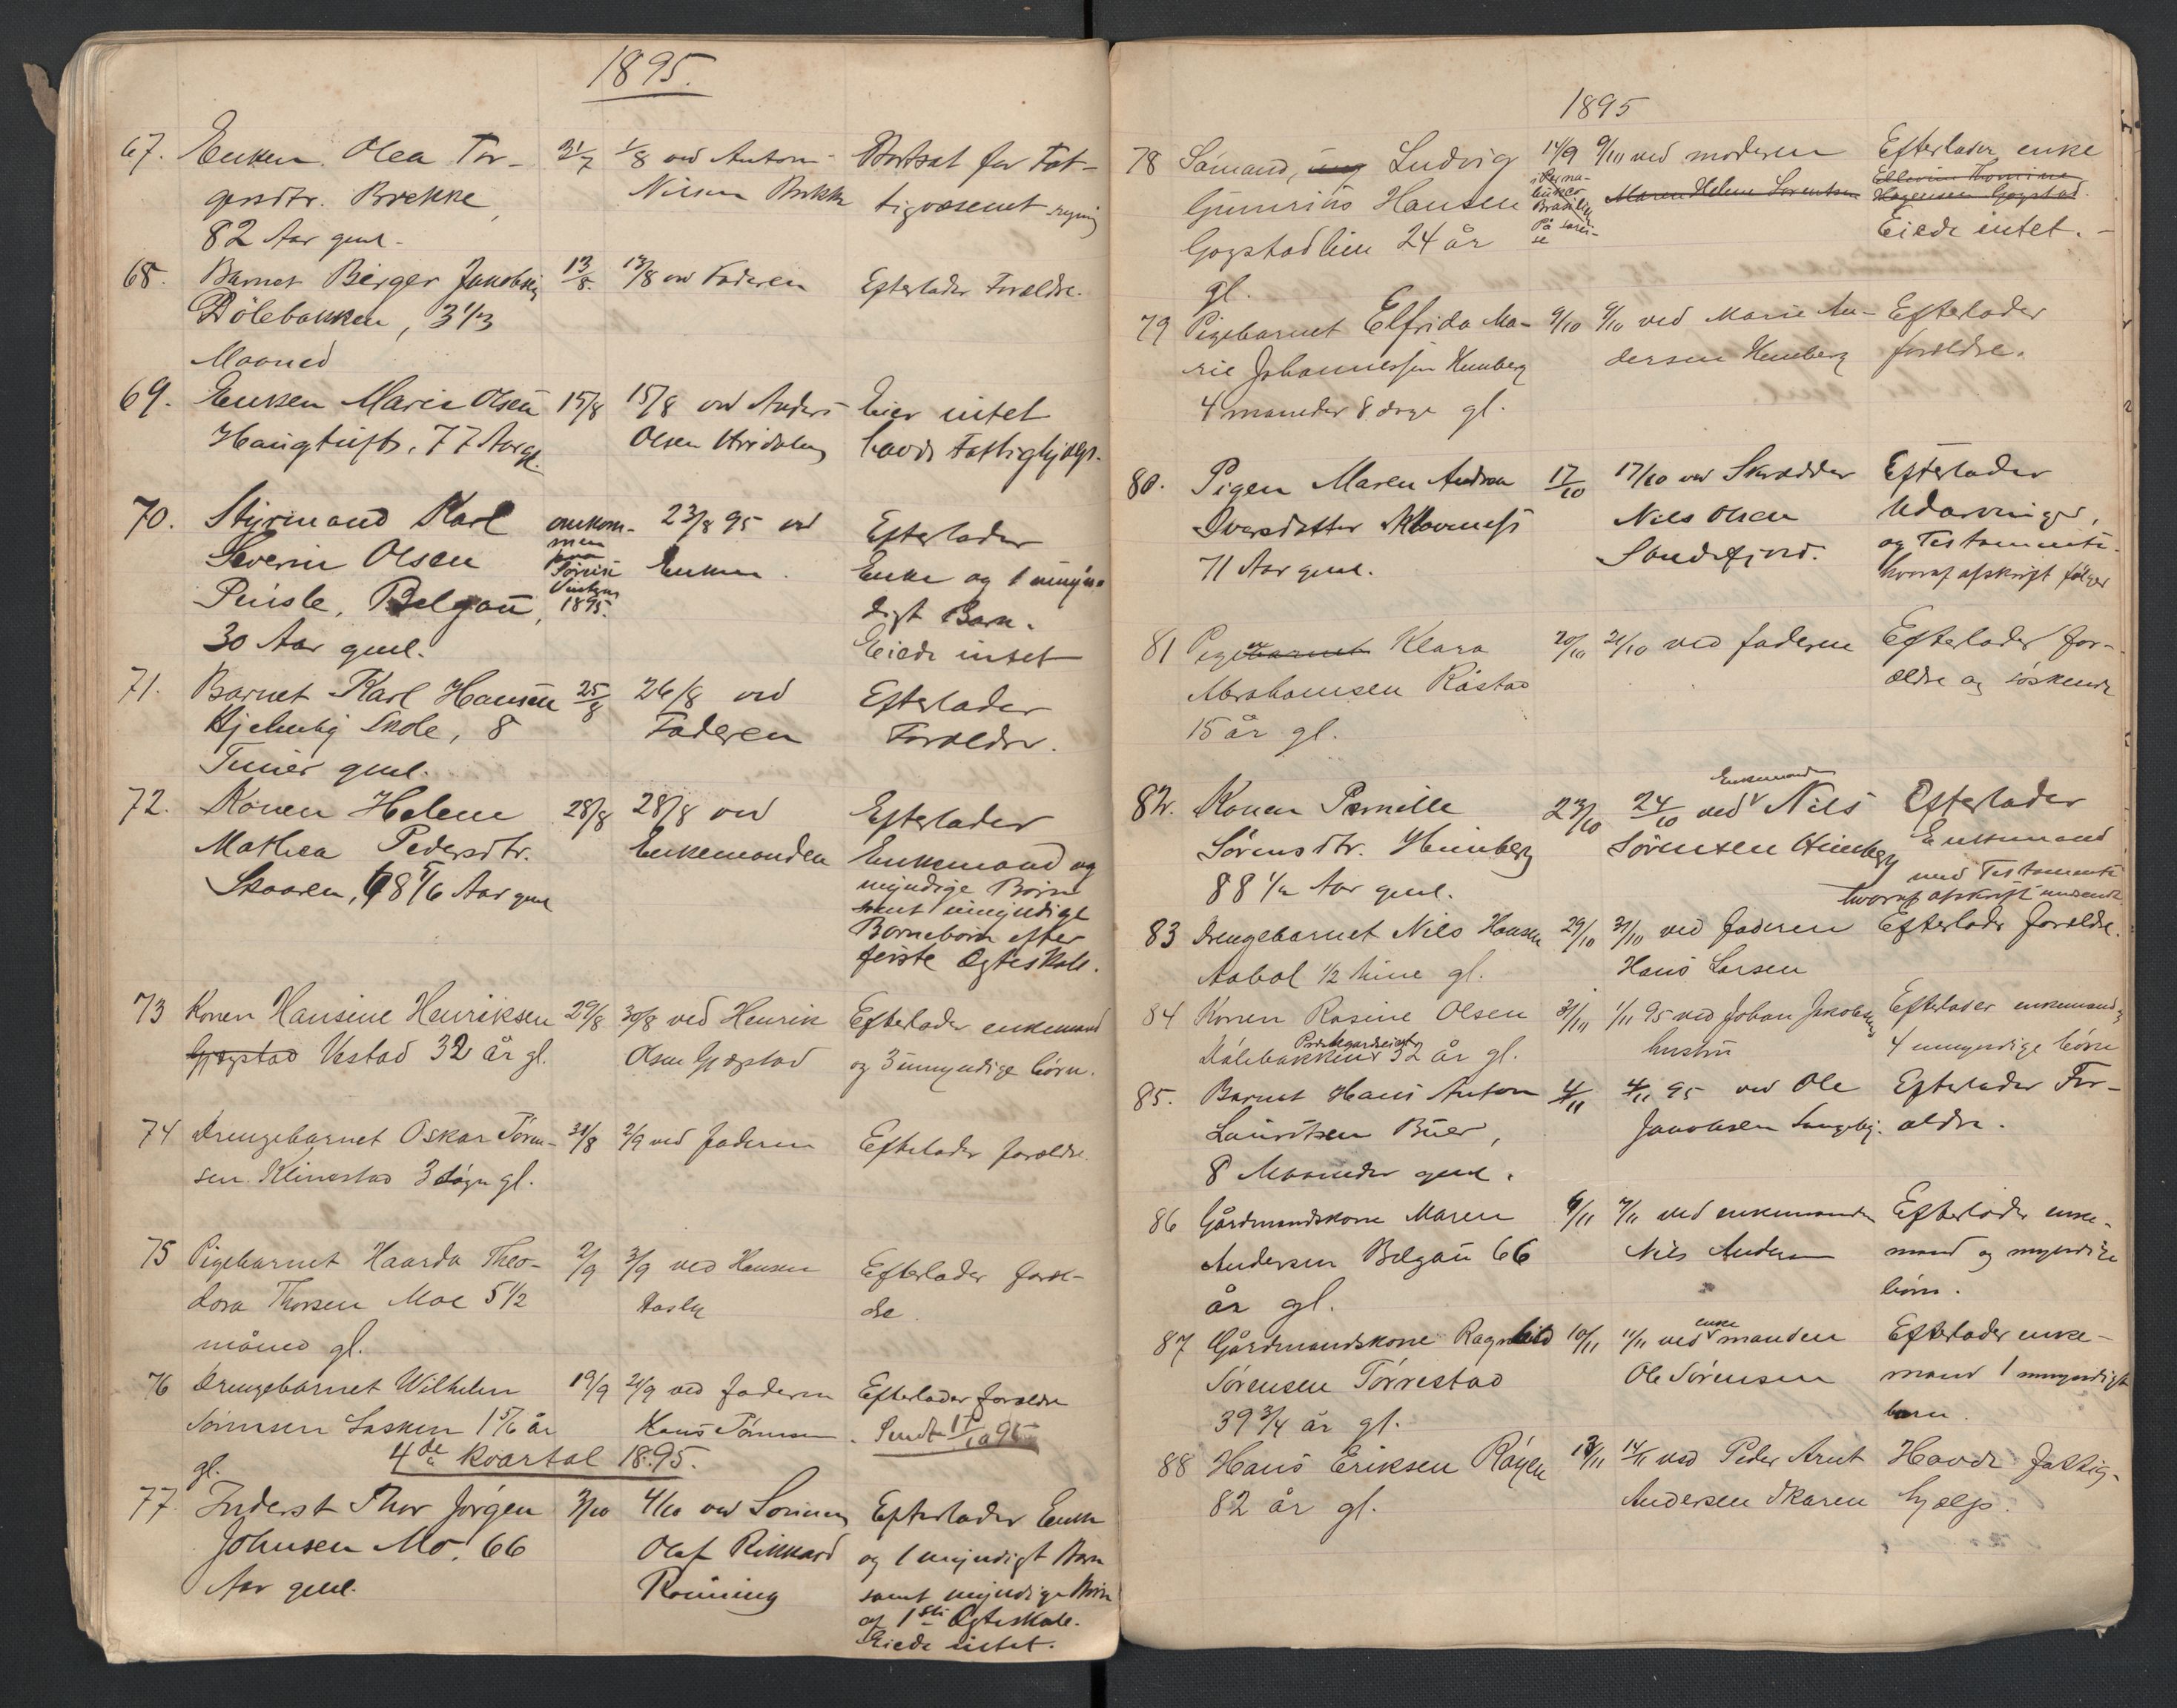 1895.
67. Enken Olea Tor- 31/7 1/8 ved Anton Bortsat for Fat-
gersdtr. Brekke, Nilsen Brekke tigvæsenet regning
82 Aar gml.
68. Barnet Birger Jakobsen 13/8. 13/8 ved Faderen Efterlader Forældre.
Dölebakken, 3 1/3
Maaned
69. Enken Maren Olsen 15/8 15/8 ved Anders Eier intet
Haugtuft, 77 Aar gl. Olsen havde Fattighjælp.
70. Styrmand Karl omkom- 23/8 95 ved Efterlader
Severin Olsen men paa Enken. Enke og 1 umyn-
Puisle, Belgau, Söreise digt Barn.
30 Aar gml. 1895. Eiede intet
71. Barnet Karl Hansen 25/8 26/8 ved Efterlader
Hjelmby Skole, 8 Faderen Forældre.
Timer gml.
72. Konen Helene 28/8 28/8 ved Efterlader
Mathea Pedersdtr. Enkemanden Enkemand og
Skaaren, 68 5/6 Aar gml myndige Börn
samt umyndige
Börnebörn efter
förste Ægteskab.
73 Konen Hansine Henriksen 29/8 30/8 ved Henrik Efterlader enkemand
Gjogstad Vestad 32 år gl. Olsen Gjogstad og 3 umyndige börn.
74 Drengebarnet Oskar Tórn- 31/8 2/9 ved faderen Efterlader forældre.
sen Klinestad 3 døgn gl.
75 Pigebarnet Haarda Theo- 2/9 3/9 ved Hansen Efterlader foræl-
dora Thorsen Moe 5 1/2 Haslen dre
måned gl.
76 Drengebarnet Wilhelm 19/9 21/9 ved faderen Efterlader forældre
Lasken 1 5/6 år Hans Sendt 1/10 95
gl.
4de kvartal 1895.
77. Inderst Thor Jörgen 3/10 4/10 ved Sönnen Efterlader Enke
Johnsen Mo, 66 Olaf Rikkard og 1 myndigt Barn
Aar gml. Rönning samt myndige Börn
af 1ste Ægteskab.
Eiede intet.
1895
78 Sömand, ung Ludvig 14/9 9/10 ved moderen Efterlader enke
Gunerius Hansen i Perna- Maren Helene Lorentsen Ellevine Thomine
Gogstadlien 24 år buker Brasilien Hagensen Gogstad.
gl. På sörei- Eiede intet. -
se
79 Pigebarnet Elfrida Ma- 9/10 9/10 ved Marie An- Efterlader
rie Johannessen Hunberg dersen Hunberg forældre.
4 maneder 8 dage gl.
80. Pigen Maren Andrea 17/10 17/10 ved Skrædder Efterlader
Iversdatter Klavenæs Nils Olsen Udarvinger,
71 Aar gml. Sandefjord. og Testamente
hvoraf afskrift fölger
81 Pigebarnet Klara 20/10 21/10 ved faderen Efterlader for-
Abrahamsen Råstad ældre og söskende
15 år gl.
82. Konen Pernille 23/10 24/10 ved Enkemanden Nils Efterlader
Sörensdtr. Himberg Sörensen Himberg Enkemand
88 1/2 Aar gml. med Testamente
hvoraf afskrift
83 Drengebarnet Nils Hansen 29/10 31/10 ved faderen Efterlader forældre.
Aabol 1/2 time gl. Hans Larsen
84 Konen Rasine Olsen 31/10 1/11 95 ved Johan Jakobsens Efterlader enkemand og
Dölebakken 32 år gl. hustru 4 umyndige börn
85. Barnet Hans Anton 4/11 4/11 95 ved Ole Efterlader For-
Lauritsen Buer, Jakobsen Langeby. ældre.
8 Maaneder gml.
86 Gårdmandskone Maren 6/11 7/11 ved enkemanden Efterlader enke-
Andersen Belgau 66 Nils Andersen mand og myndige
år gl. börn.
87 Gårdmandskone Ragnhild 10/11 11/11 ved enkemanden Efterlader enke-
Sörensen Törrestad Ole Sörensen mand 1 umyndigt
39 3/4 år gl. barn.
88 Hans Eriksen Råyen 13/11 14/11 ved Peder Arnt Havde fattig-
82 år gl. Andersen Skaren hjælp.